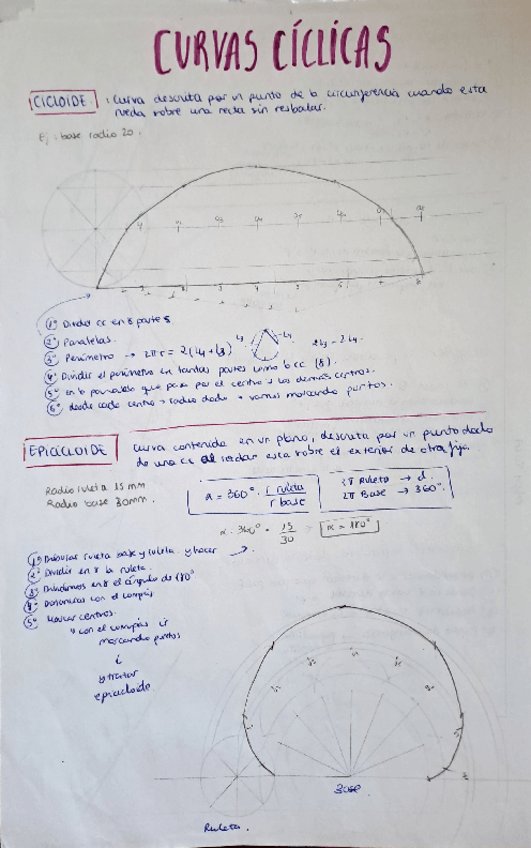 CURVAS CÍCLICAS
CICLOIDE : Curva descrita por un punto de la circunferencia cuando esta
rueda sobre una recta sin resbalar.
Ej: base radio 20.
1º Dividir cc en 8 partes.
2º Paralelas.
3º Perímetro → 2πr = 2(L4+L8)
4º Dividir el perímetro en tantas partes como la cc (8).
5º en la paralela que pasa por el centro los demás centros.
6º desde cada centro + radio dado + vamos marcando puntos.
EPICICLOIDE Curva contenida en un plano, descrita por un punto dado
de una cc al rodar esta sobre el exterior de otra fija.
Radio ruleta 15 mm
Radio base 30mm.
α = 360° · r ruleta / r base
2π Ruleta → d.
2π Base → 360°.
α = 360° · 15/30 = α = 180°
1º Dibujar ruleta base y ruleta. y hacer →.
2º Dividir en 8 la ruleta.
3º Dividimos en 8 el ángulo de 180°
4º Distancias con el compás
5º Marcar centros.
con el compás ir
marcando puntos
y trazar
epicicloide
Base
Ruleta.